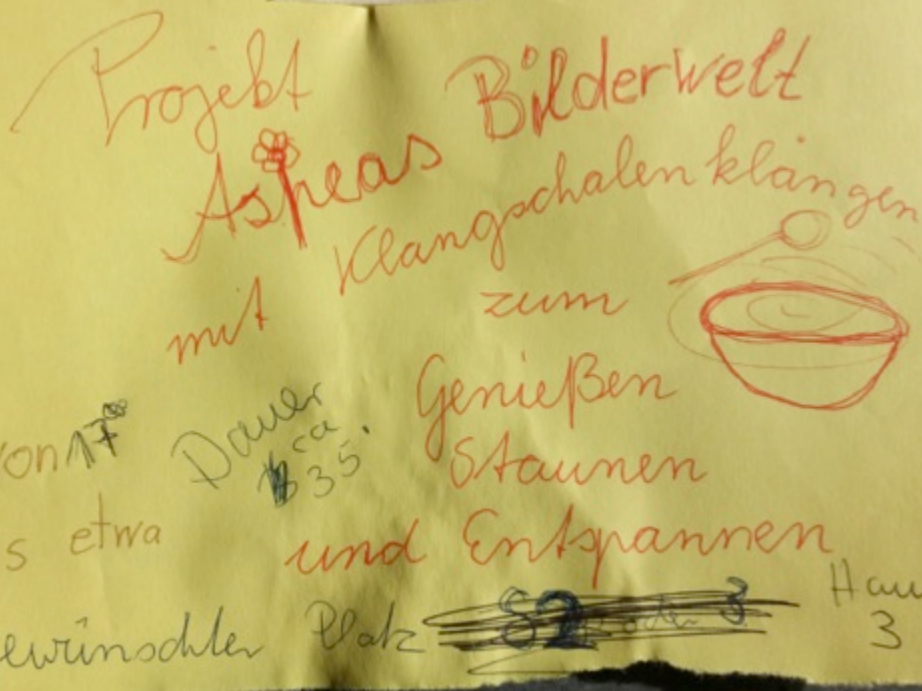 Projekt Bilderwelt
Aspeas
mit Klangschalenklängen
zum
Genießen
Staunen
und Entspannen
von 17⁰⁰
Dauer
ca
35'
s etwa
ewünschter Platz
Hau
3